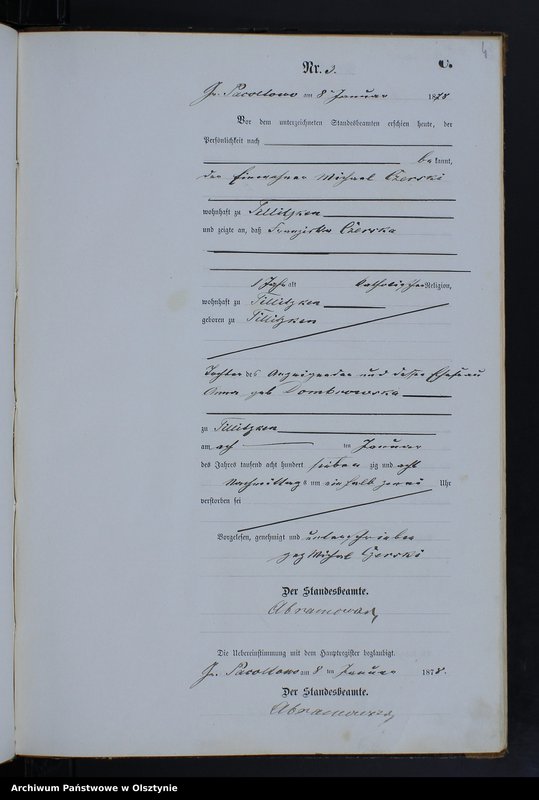 4
C.
Nr. 3.
Gr. Pacoltowo am 8 Januar 1878
Vor dem unterzeichneten Standesbeamten erschien heute, der
Persönlichkeit nach
bekannt,
der Einwohner Michael Czerski
wohnhaft zu Tillitzken
und zeigte an, daß Franziska Czerska
1 Jahr alt katholischer Religion,
wohnhaft zu Tillitzken
geboren zu Tillitzken
Tochter des Anzeigenden und dessen Ehefrau
Anna geb Dombrowska
zu Tillitzken
am acht ten Januar
des Jahres tausend acht hundert sieben zig und acht
Nachmittags um ein halb zwei Uhr
verstorben sei
Vorgelesen, genehmigt und unterschrieben
gez Michal Czerski
Der Standesbeamte.
Die Uebereinstimmung mit dem Hauptregister beglaubigt.
Gr. Pacoltowo am 8 ten Januar 1878.
Der Standesbeamte.
Archiwum Państwowe w Olsztynie